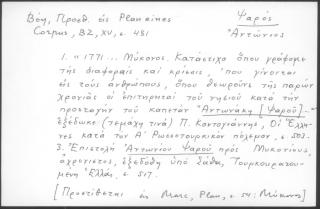 Βόη, Προσθ. εἰς
Ψαρός
Corpus, BZ, XV, σ. 481
Ἀντώνιος
1. «1771 ... Μύκονος. Κατάστιχο ὅπου γράφομε
τῆς διαφοραῖς καὶ κρίσεις, ὅπου γίνονται
εἰς τοὺς ἀνθρώπους, ὅπου θεωροῦντε τῆς παρὸν
χρονιᾶς οἱ ἐπιτηρηταὶ τοῦ νησιοῦ κατὰ τὴν
προσταγὴν τοῦ καπετὰν Ἀντωνάκη [Ψαροῦ].—
ἐξέδωκε (τεμάχη τινὰ) Π. Κοντογιάννης, Οἱ Ἕλλη-
νες κατὰ τὸν Α' Ρωσσοτουρκικὸν πόλεμον, σ. 503.
3. Ἐπιστολὴ Ἀντωνίου Ψαροῦ πρὸς Μυκονίους,
ἀχρονίστος, ἐξεδόθη ὑπὸ Σάθα, Τουρκοκρατου-
μένη Ἑλλάς, σ. 517.
[Προστίθεται εἰς Marc, Plan, σ. 54: Μύκονος]